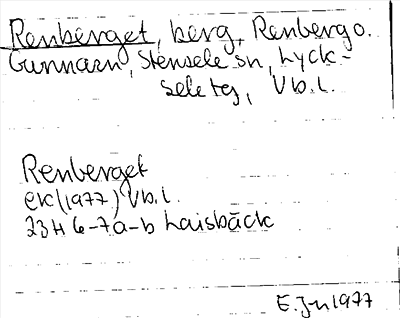 Renberget, berg, Renberg o.
Gunnarn, Stensele sn, Lyck-
sele tg, Vb.l.
Renberget
ek (1977) Vb.l.
23H 6-7a-b Laisbäck
E. Jn 1977